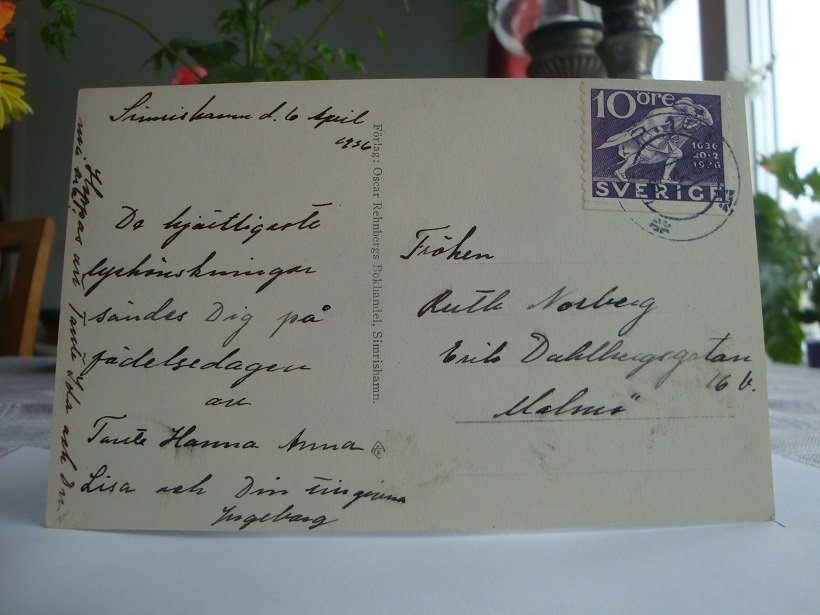 Simrishamn d. 6 April
1936
De hjärtligaste
lyckönskningar
sändes Dig på
födelsedagen
av
Tante Hanna Anna
Lisa och Din
Ingeborg
Hoppas att Tante och Du
må
Förlag: Oscar Rehnbergs Bokhandel, Simrishamn.
10 öre
1636
20-2
1936
SVERIGE
Fröken
Ruth Norberg
Erik Dahlbergsgatan
16 b.
Malmö